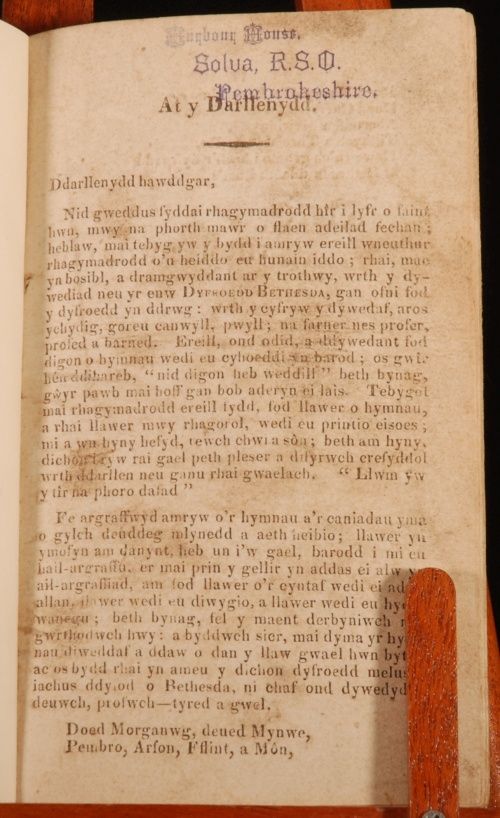 House,
Solva, R.S.O.
Pembrokeshire.
At y Darllenydd.
Ddarllenydd hawddgar,
Nid gweddus fyddai rhagymadrodd hir i lyfr o faint
hwn, mwy na phorth mawr o flaen adeilad fechan;
heblaw, mai tebyg yw y bydd i amryw ereill wneuthur
rhagymadrodd o'u heiddo eu hunain iddo; rhai, mae
yn bosibl, a dramgwyddant ar y trothwy, wrth y dy-
wediad neu yr enw DYFROEDD BETHESDA, gan ofni fod
y dyfroedd yn ddrwg: wrth y cyfryw y dywedaf, aros
ychydig, goreu canwyll, pwyll; na farner nes profer,
profed a barned. Ereill, ond odid, a ddywedant fod
digon o hymnau wedi eu cyhoeddi yn barod; os gwir
hen ddihareb, "nid digon heb weddill" beth bynag,
gwyr pawb mai hoff gan bob aderyn ei lais. Tebygol
mai rhagymadrodd ereill fydd, fod llawer o hymnau,
a rhai llawer mwy rhagorol, wedi eu printio eisoes;
mi a wn hyny hefyd, tewch chwi a sôn; beth am hyny,
dichon i ryw rai gael peth pleser a difyrwch crefyddol
wrth ddarllen neu ganu rhai gwaelach. "Llwm yw
y tir na phoro dafad"
Fe argraffwyd amryw o'r hymnau a'r caniadau yma
o gylch deuddeg mlynedd a aeth heibio; llawer yn
ymofyn am danynt, heb un i'w gael, barodd i mi eu
hail-argraffu, er mai prin y gellir yn addas ei alw yn
ail-argraffiad, am fod llawer o'r cyntaf wedi ei
allan, llawer wedi eu diwygio, a llawer wedi eu
wanegu; beth bynag, fel y maent derbyniwch
gwrthodwch hwy: a byddwch sicr, mai dyma yr
nau diweddaf a ddaw o dan y llaw gael hwn
ac os bydd rhai yn ameu y dichon dyfroedd
iachus ddyfod o Bethesda, ni chaf ond
deuwch, profwch—tyred a gwel.
Doed Morganwg, deued Mynwe,
Pembro, Arfon, Fflint, a Môn,